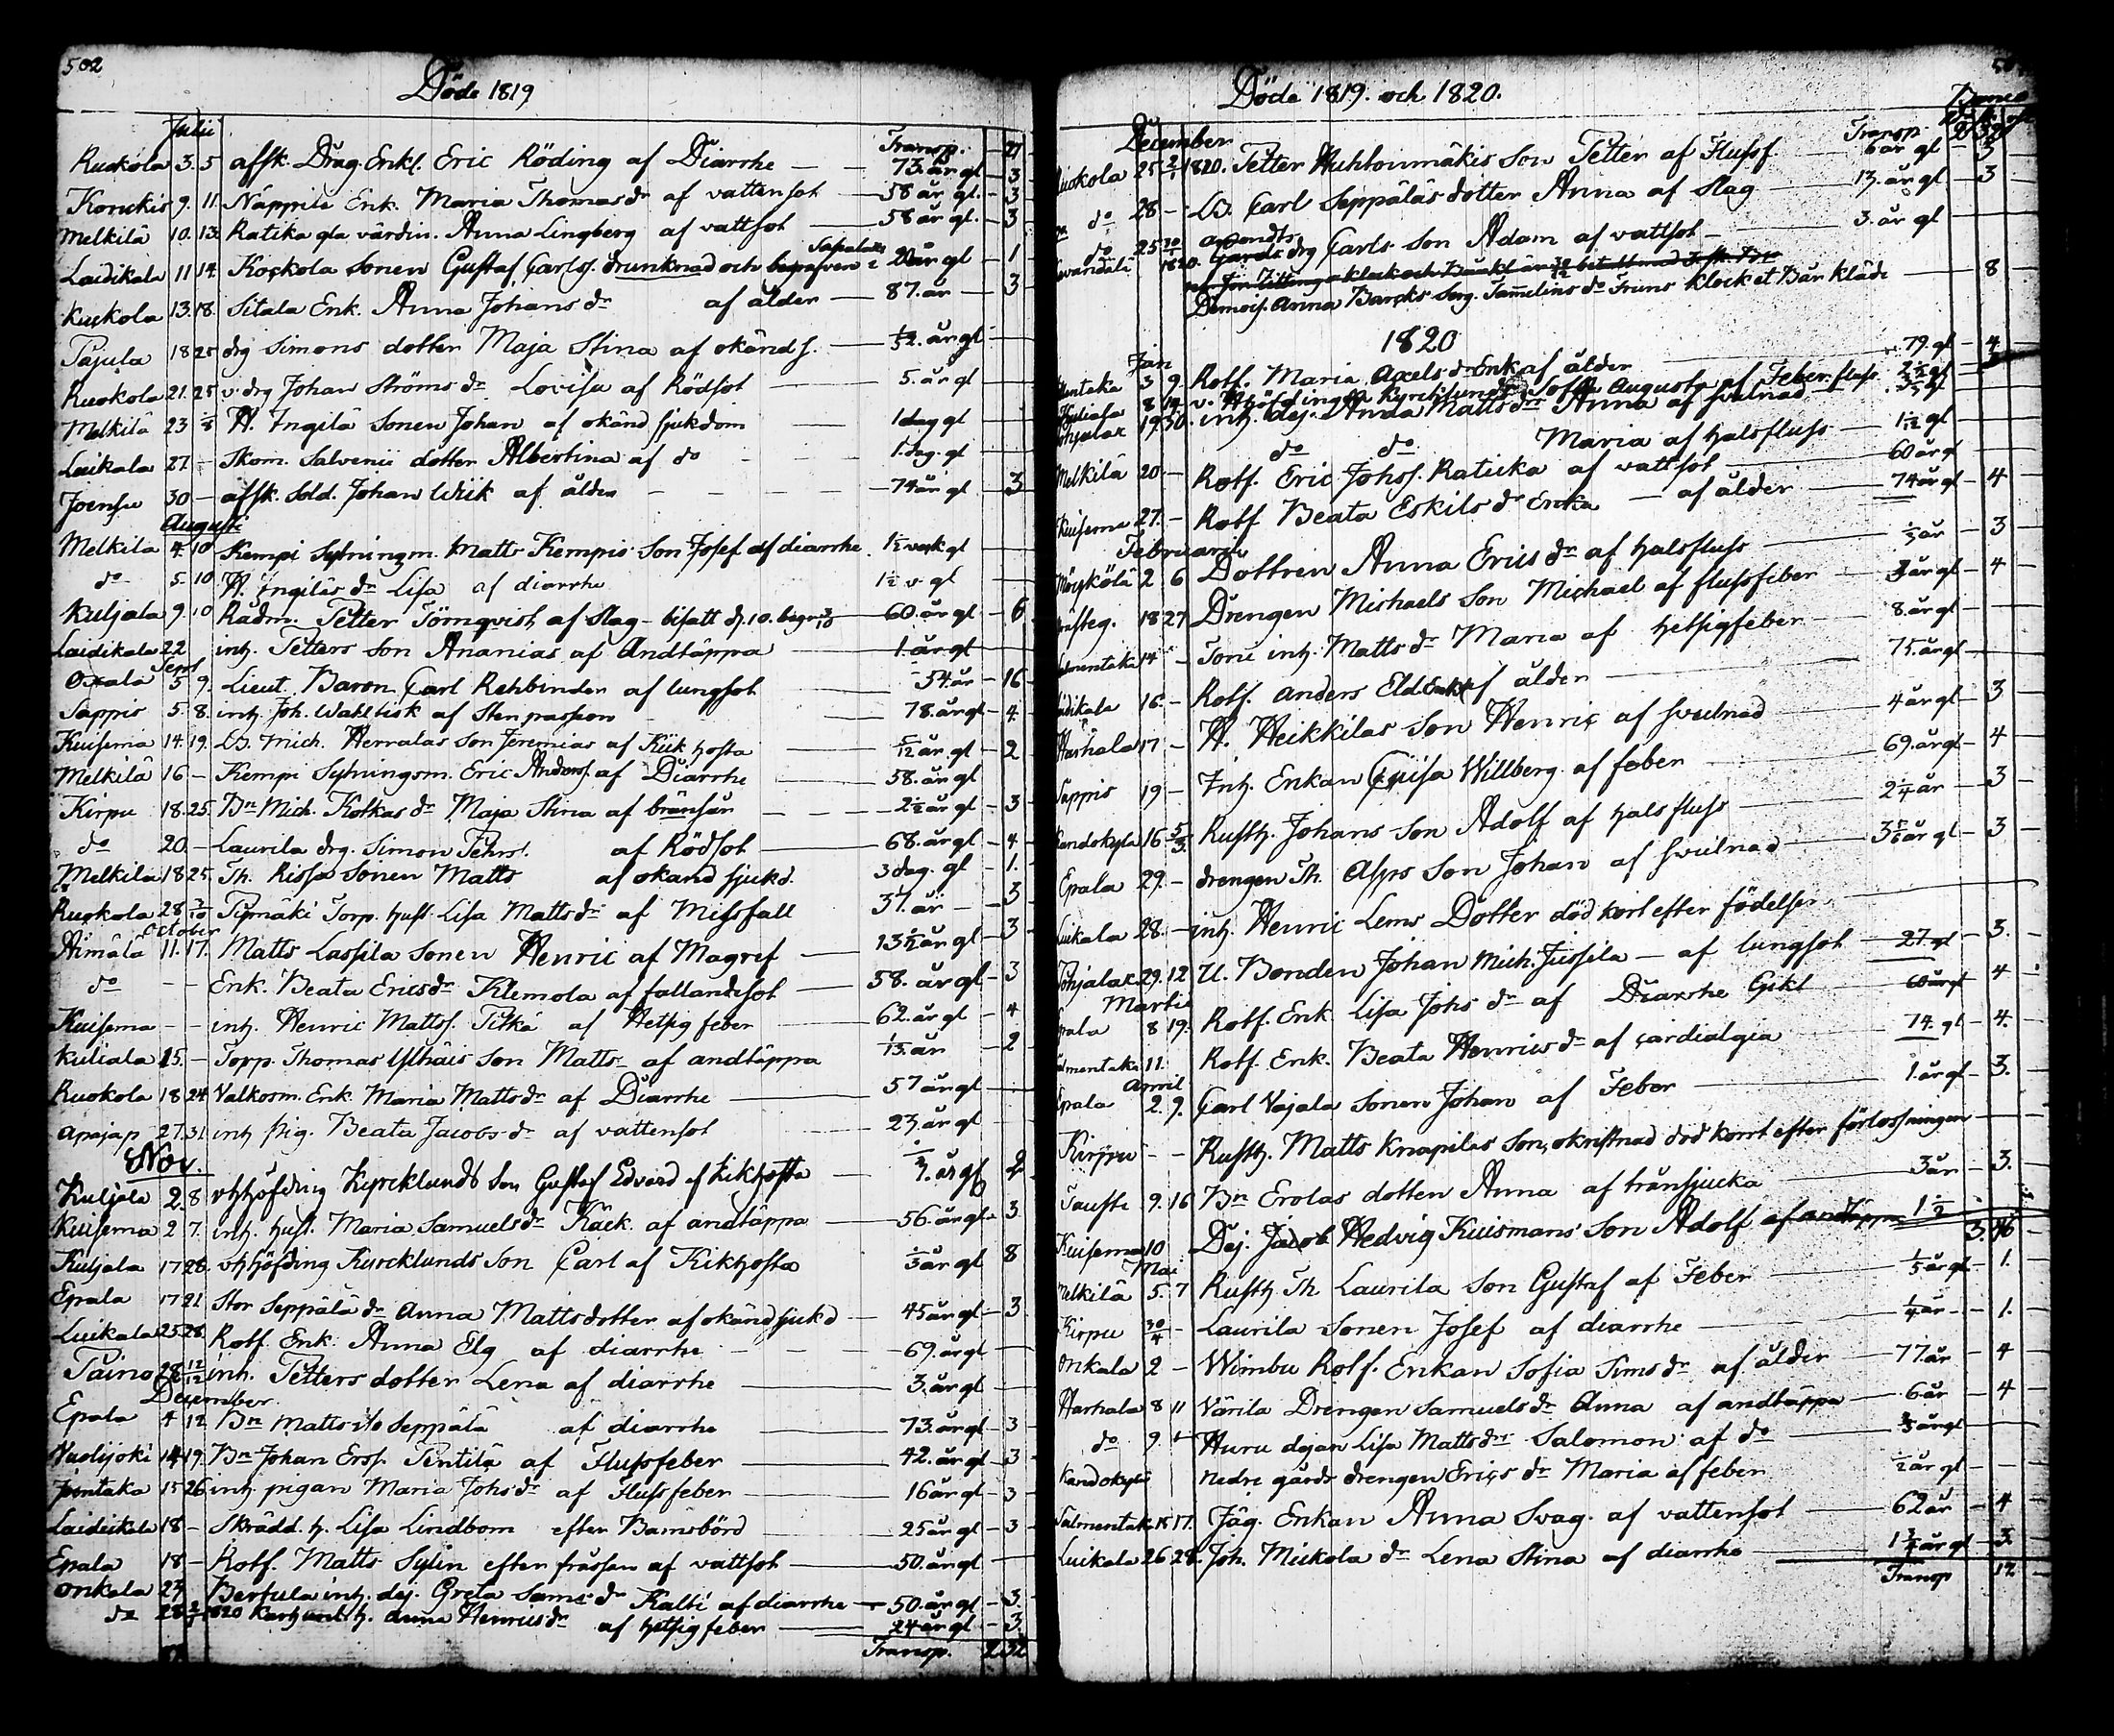 502
Döde 1819
Julii
Transp. 21
Ruokola 3. 5 affsk. Drag. Enkl. Eric Röding af Diarrhe 73. år gl 3
Konckis 9. 11. Näppilä Enk. Maria Thomas dr af vattensot 58 år gl. 3
Melkilä 10. 13. Ratika gla värdin. Anna Lingberg af vattsot 58 år gl. 3
Laidikala 11 14. Kockola Sonen Gustaf Carls. drunknad och år gl 1
Kuckola 13. 18. Sitala Enk. Anna Johans dr af ålder 87. år 3
Pajula 18 25 drg Simons dotter Maja Stina af okänd s. år gl
Ruokola 21. 25 v. drg Johan Ströms dr Lovisa af Rödsot 5. år gl
Melkilä 23 H. Ingilä Sonen Johan af okänd sjukdom 1 dag gl
Luikala 27. - Skom. Salvenii dotter Albertina af do 1. dag. gl
Joensu 30 - affsk. Sold. Johan Wiik af ålder 74 år gl 3
Augusti
Melkila 4. 10 Kempi Sytningm. Matts Kempis Son Josef af diarrhe 1½ vek gl
do 5. 10 H. Ingiläs dr Lisa af diarrhe 1½ v. gl
Kuljala 9. 10 Rådm. Petter Törnqvist af Slag - bisatt d. 10. 60. år gl 6
Laidikala 22 inh. Petters Son Ananias af Andtäppa 1. år gl
Sept
Oxala 5 9. Lieut. Baron Carl Rehbinder af lungsot 54. år 16
Sappis 5. 8. inh. Joh. Wahllisk af Stenpassion 78. år gl 4.
Kuisema 14. 19. Mich. Herralas Son Jeremias af Kikhosta 5/12 år gl 2
Melkilä 16 - Kempi Sytningsm. Eric Anders. af Diarrhe 58. år gl
Kirpu 18. 25. Bn Mich. Kotkas dr Maja Stina af bränsår 2½ år gl 3
do 20. - Laurila drg. Simon Pehrs. af Rödsot 68. år gl 4
Melkila 18 25. Th. Rissa Sonen Matts af okänd sjukd. 3 dag. gl 1.
Ruokola 28 3/10 Torp. hust. Lisa Matts dr af Missfall 37. år 3
October
Aimälä 11. 17. Matts Lassila Sonen Henric af Magref 13½ år gl 3
do - - Enk. Beata Erics dr Klemola af fallandesot 58. år gl 3
Kuisema - - inh. Henric Matts. Pitkä af Hetsig feber 62. år gl 4
Kuliala 15. - Torp. Thomas Son Matts af andtäppa år 2
Ruokola 18 24 Valkosm. Enk. Maria Matts dr af Diarrhe 57 år gl
Apajap 27. 31. inh pig. Beata Jacobs dr af vattensot 23 år gl
Nov.
Kuljala 2. 8. vhhöfding Kyrcklunds Son Gustaf Edvard af Kikhosta år gl 2
Kuisema 2 7. inh. hust. Maria Samuels dr Käck. af andtäppa 56. år gl 3.
Kuljala 17 28. vhhöfding Kurcklunds Son Carl af Kikhosta ⅓ år gl 8
Epala 17 21 Stor Seppälä dr Anna Mattsdotter af okänd sjukd 45 år gl 3
Luikala 25. 28. Rotf. Enk. Anna Elg af diarrhe 69. år gl
Taino 28 12/12 inh. Petters dotter Lena af diarrhe 3. år gl
December
Epala 4 12 Bn Matts Seppälä af diarrhe 73. år gl 3
Vuolijoki 14 19. Bn Johan Ers. Pentilä af Flussfeber 42. år gl 3
Jointaka 15 26 inh pigan Maria Johs dr af Flussfeber 16 år gl 3
Laidikala 18 - Skrädd. h. Lisa Lindbom efter Barnsbörd 25 år gl 3
Epala 18 - Rotf. Matts Sylin efter frässan af vattsot 50. år gl
Onkala 27 Bertula inh. dej. Greta Sams dr Kalli af diarrhe 50. år gl 3.
do 28 2/1 1820 Anna Henrics dr af hetsig feber 24 år gl 3.
Transp. 232
Döde 1819. och 1820.
December
Transp.
Ruokola 25 2/1 1820. Petter Huhtoinmäkis Son Petter af Flussf. 6 år gl 3
do 28 - Carl Seppäläs dotter Anna af Slag 13. år gl 3
do 25 30/1 1820. Carls Son Adam af vattsot 3. år gl
Demois. Anna Barcks Serg. Tamelins do Fruns klock et Bår kläde 8
1820
Jan
3 9. Rotf. Maria Axels dr Enk af ålder 79. gl 4.
8 14 v. Hhöfdingen Kyrcklunds dr Sofia Augusta af Feber fluss 2½ gl 3
19 30. inh. dej. Anna Matts dr Anna af svulnad
do do Maria af halsfluss 1 gl
Melkilä 20 - Rotf. Eric Johs. Raticka af vattsot 60 år gl
Kuisema 27. - Rotf Beata Eskils dr Enka af ålder 74 år gl 4
Februarii
2 6 Dottren Anna Erics dr af halsfluss ⅓ år 3
18 27 Drengen Michaels Son Michael af flussfeber år gl 4
14 - Toni inh. Matts dr Maria af hetsigfeber 8. år gl
Laidikala 16. - Rotf. Anders Eld Enka af ålder 75. år gl
Harhala 17 - H. Heikkiläs Son Henric af svulnad 4 år gl 3
Sappis 19 - Inh. Enkan Willberg af feber 69. år gl 4
16 5/3. Rusth. Johans Son Adolf af halsfluss 2¼ år 3
Epala 29. - drengen Th. Asps Son Johan af svulnad år gl 3
Luikala 28. - inh. Henric Lems Dotter död kort efter födelsen
29. 12 U. Bonden Johan Mich. Jussila af lungsot 27. gl 3.
Martii
Epala 8 19. Rotf. Enk. Lisa Johs dr af Diarrhe 60 år gl 4
11. Rotf. Enk. Beata Henrics dr af cardialgia 74. gl 4.
April
Epala 2. 9. Carl Vajala Sonen Johan af Feber 1. år gl 3.
Kirpu - - Rusth. Matts Knapilas Son, okristnad död kort efter förlossningen
Tauste 9. 16 Bn Erolas dotter Anna af trånsjucka 3 år 3.
Kuisema 10 Dej. Hedvig Kuismans Son Adolf af andtäppa 1½ 3. 46
Mai
Melkilä 5. 7 Rusth. Th Laurila Son Gustaf af Feber ⅕ år gl 1.
Kirpu 30/4 - Laurila Sonen Josef af diarrhe ¼ år 1.
Onkala 2 - Wimbu Rotf. Enkan Sofia Sims dr af ålder 77. år 4
Harhala 8 11 Värila Drengen Samuels dr Anna af andtäppa 6 år 4
do 9. Huru dejan Lisa Matts dr Salomon af do år gl
nedre gårds drengen Erics dr Maria af feber ½ år gl
15 17. Jäg. Enkan Anna Svag. af vattensot 62 år 4
Luikala 26 28. Joh. Mickola dr Lena Stina af diarrhe 1¾ år gl 3.
Transp 12